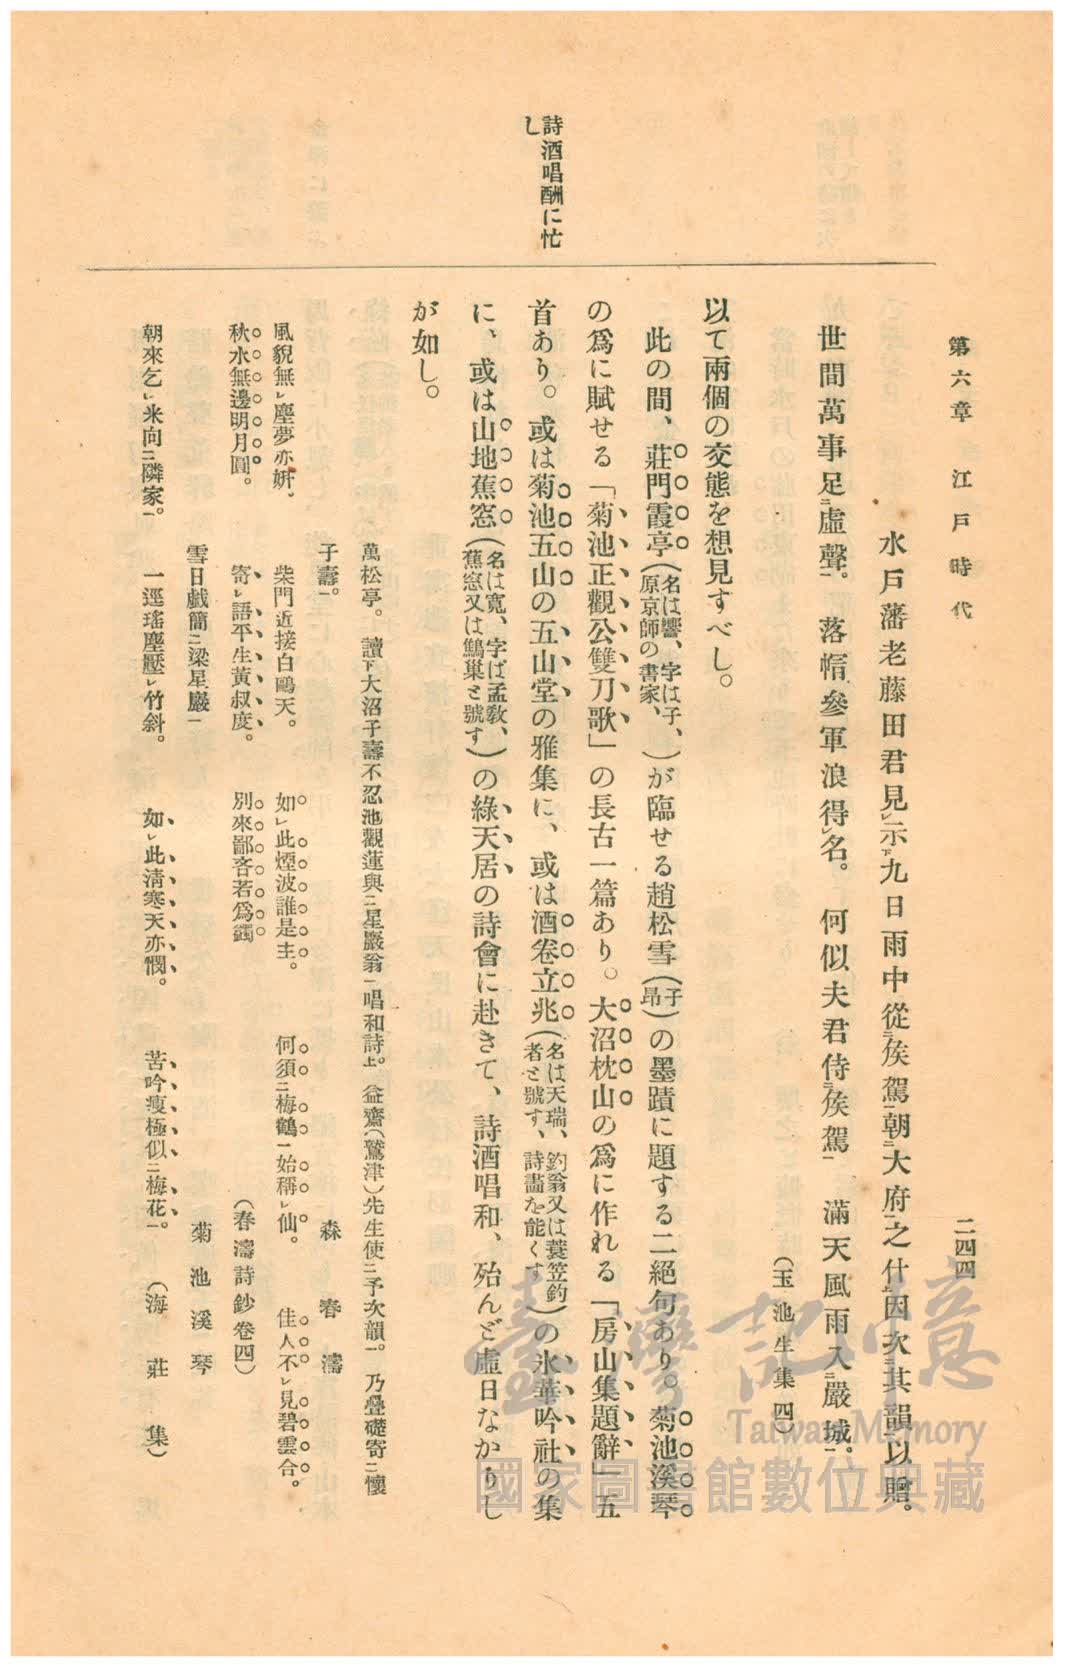 第六章 江戶時代
二四四
詩酒唱酬に忙し
水戶藩老藤田君見レ示下九日雨中從二矦駕一朝二大府一之什上因次二其韻一以贈。
世間萬事足二虛聲一。落帽參軍浪得レ名。何似夫君侍二矦駕一 滿天風雨入二嚴城一。
(玉池生集四)
以て兩個の交態を想見すべし。
此の間、莊門霞亭(名は響、字は子、原京師の書家、)が臨せる趙松雪(子昂)の墨蹟に題する二絕句あり。菊池溪琴
の爲に賦せる「菊池正觀公雙刀歌」の長古一篇あり。大沼枕山の爲に作れる「房山集題辭」五
首あり。或は菊池五山の五山堂の雅集に、或は酒卷立兆(名は天瑞、釣翁又は蓑笠釣者と號す、詩畵を能くす)の氷華吟社の集
に、或は山地蕉窓(名は寬、字は孟敎、蕉窓又は鷦巢と號す)の綠天居の詩會に赴きて、詩酒唱和、殆んど虛日なかりし
が如し。
萬松亭。讀下大沼子壽不忍池觀蓮與二星巖翁一唱和詩上。益齋(鷲津)先生使二予次韻一。乃疊礎寄二懷
子壽一。
森春濤
風貌無レ塵夢亦姸。 柴門近接白鷗天。 如レ此煙波誰是主。 何須二梅鶴一始稱レ仙。 佳人不レ見碧雲合。
秋水無邊明月圓。 寄レ語平生黃叔度。 別來鄙吝若爲蠲 (春濤詩鈔卷四)
雪日戲簡二梁星巖一
菊池溪琴
朝來乞レ米向二隣家一。 一逕瑤塵壓レ竹斜。 如レ此淸寒天亦憫。 苦吟瘦極似二梅花一。 (海莊集)
臺灣記憶
Taiwan Memory
國家圖書館數位典藏